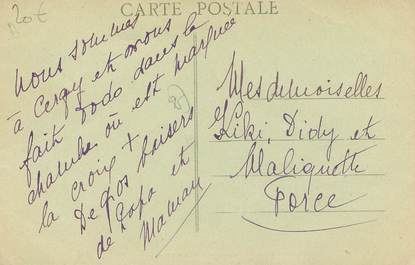 20€
CARTE POSTALE
Nous sommes
à Cergy et nous
fait dodo dans la
chambre où est marquée
la croix +
De gros baisers
de Papa et
Maman
Mesdemoiselles
Kiki, Didy et
Maliquette
Force